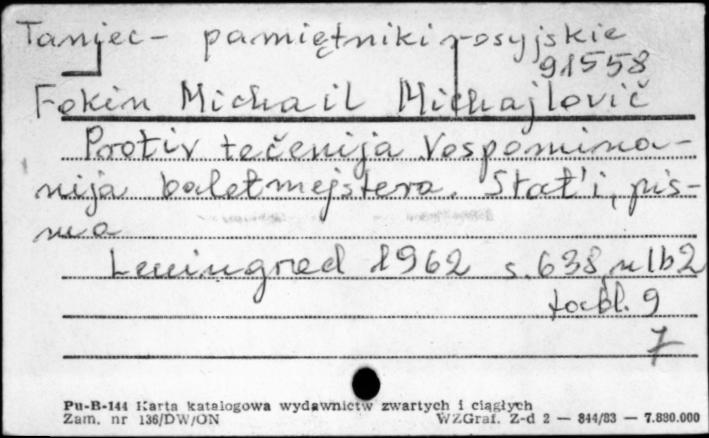 Taniec - pamiętniki rosyjskie
91558
Fokin Michail Michajlovič
Protiv tečenija Vospomina-
nija baletmejstera. Stat'i, pis-
ma
Leningrad 1962 s. 638, nlb 2
tabl. 9
7
Pu-B-144 Karta katalogowa wydawnictw zwartych i ciągłych
Zam. nr 136/DW/ON WZGraf. Z-d 2 — 844/83 — 7.880.000